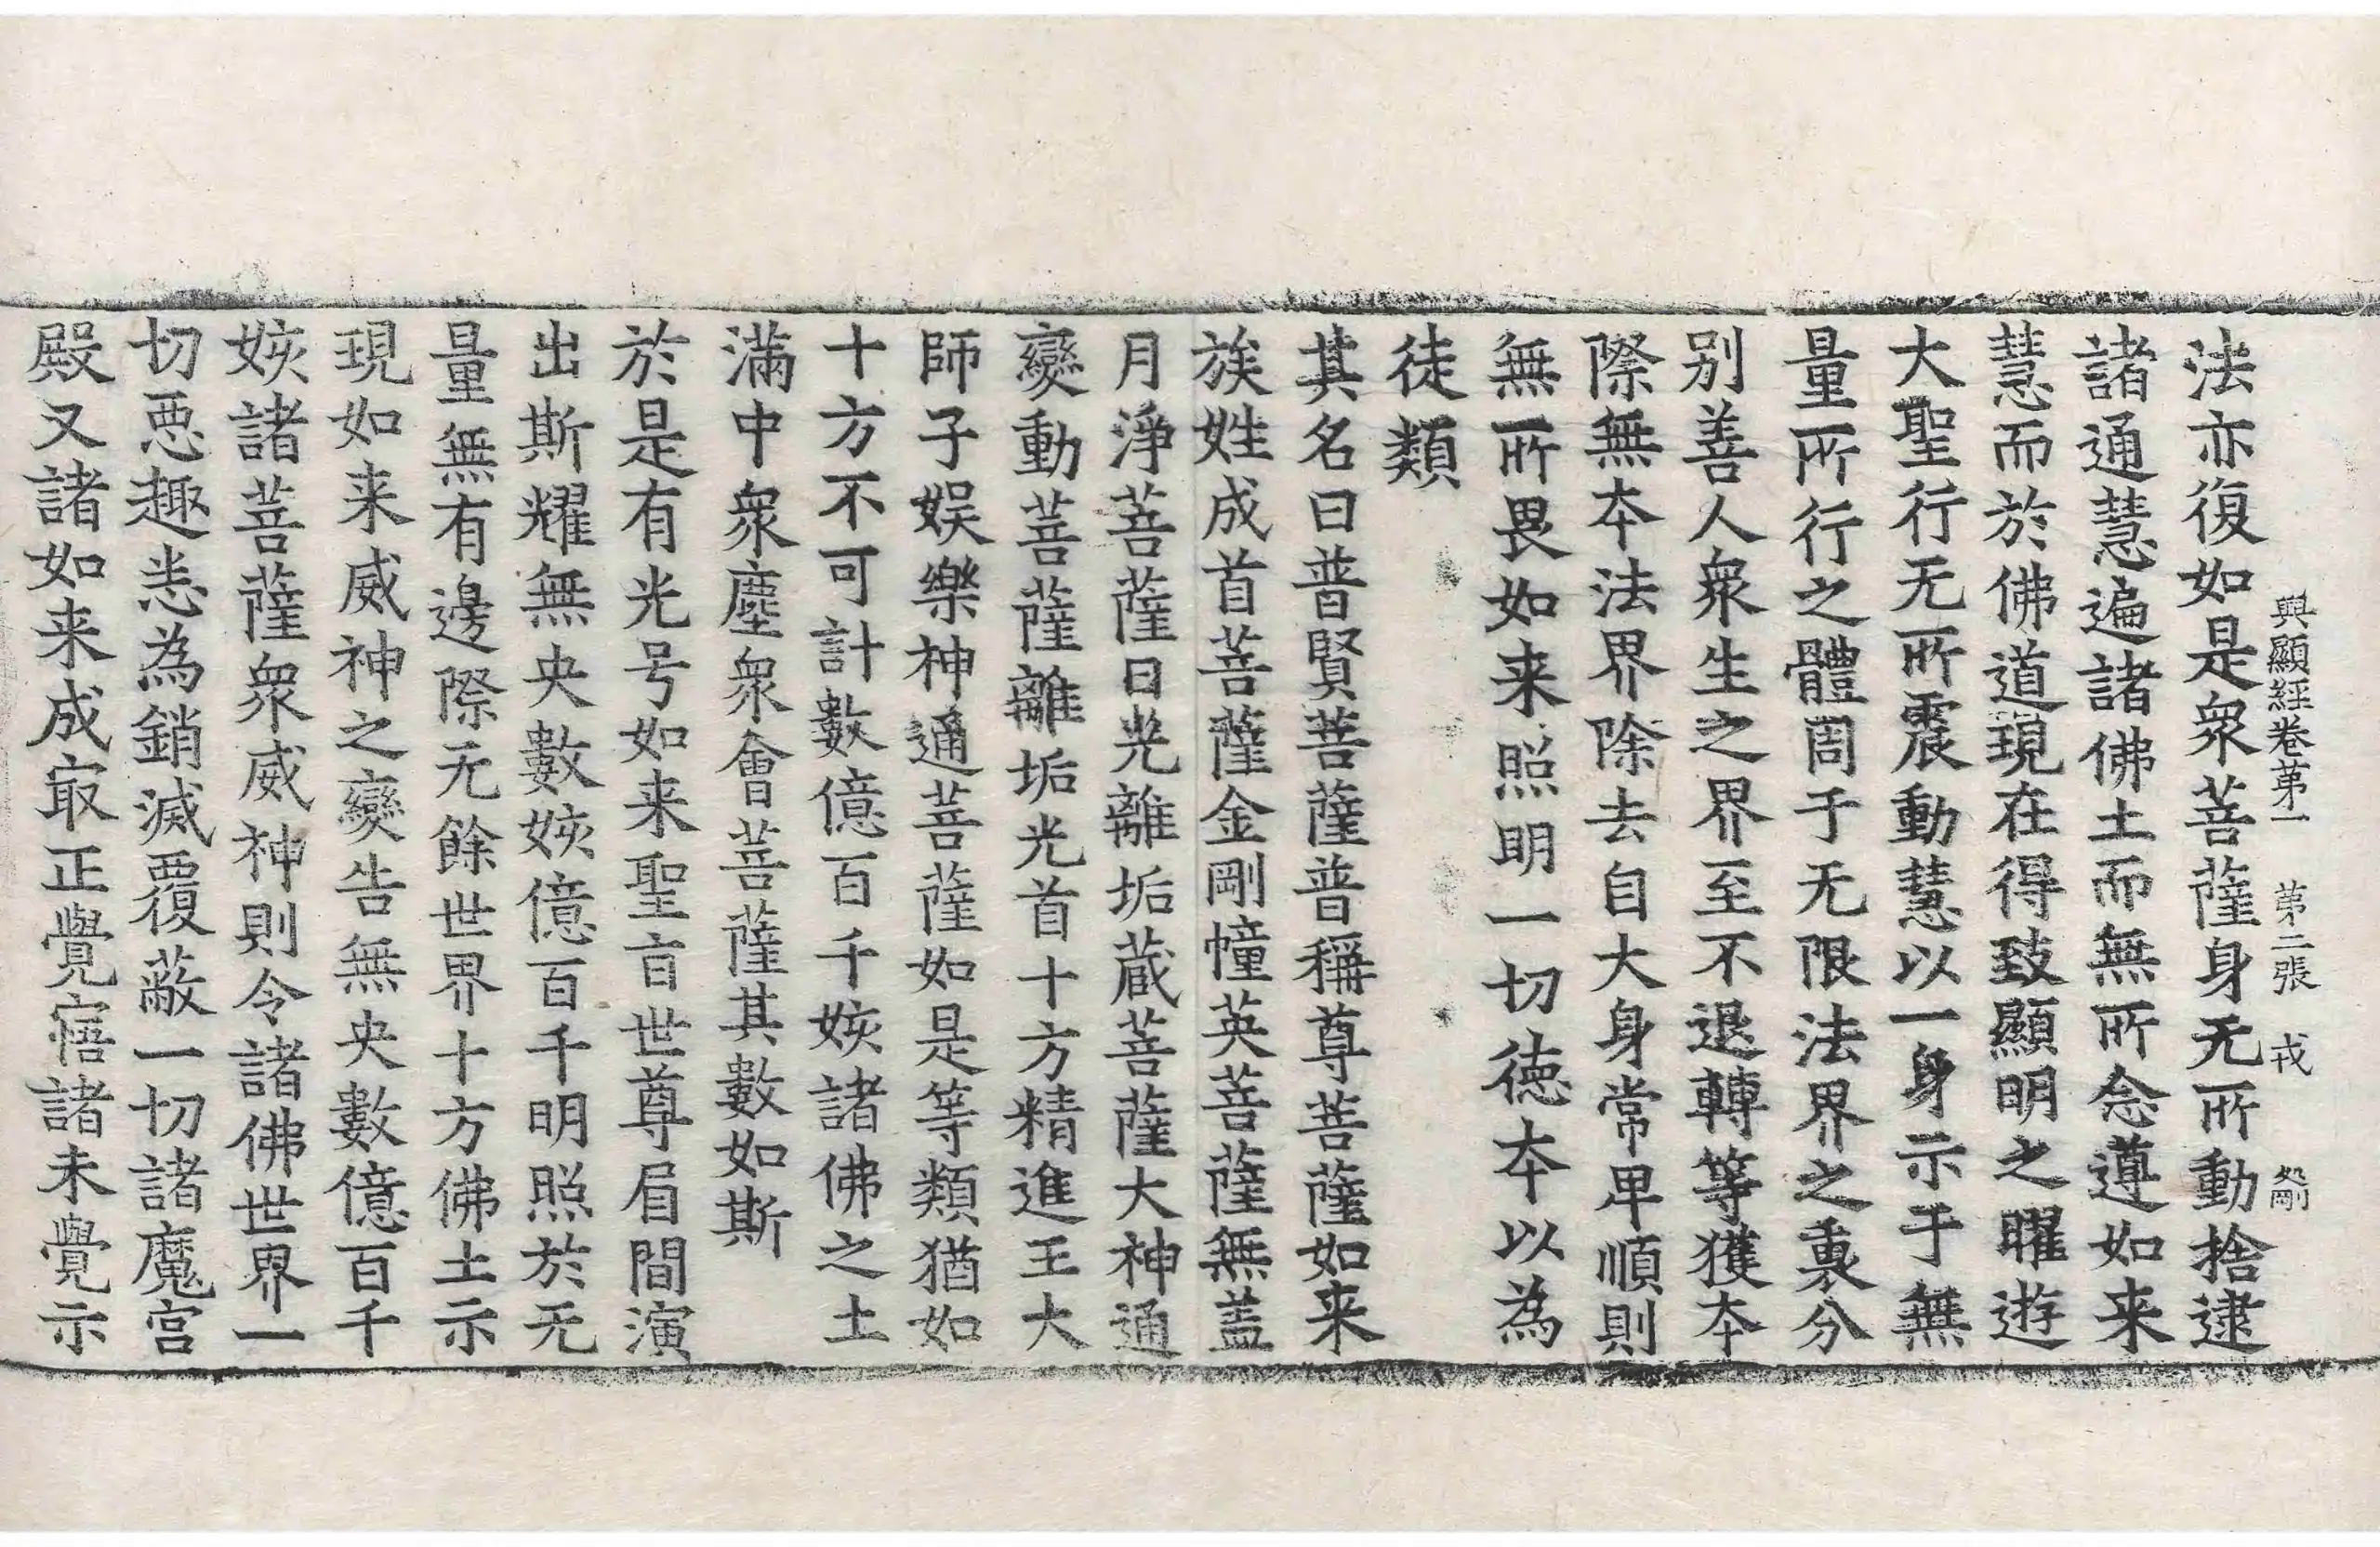 興顯經卷第一 第二張 戎
法亦復如是衆菩薩身无所動捨逮
諸通慧遍諸佛土而無所念遵如来
慧而於佛道現在得致顯明之曜遊
大聖行无所震動慧以一身示于無
量所行之體周于无限法界之裏分
别善人衆生之界至不退轉等獲夲
際無夲法界除去自大身常卑順則
無所畏如来照明一切德夲以為
徒類
其名曰普賢菩薩普稱尊菩薩如来
族姓成首菩薩金剛幢英菩薩無盖
月淨菩薩日光離垢蔵菩薩大神通
變動菩薩離垢光首十方精進王大
師子娛樂神通菩薩如是等類猶如
十方不可計數億百千姟諸佛之土
滿中衆塵衆會菩薩其數如斯
於是有光号如来聖旨世尊眉間演
出斯耀無央數姟億百千明照於无
量無有邊際无餘世界十方佛土示
現如来威神之變告無央數億百千
姟諸菩薩衆威神則令諸佛世界一
切惡趣恙為銷滅覆蔽一切諸魔宫
殿又諸如来成㝡正覺寤諸未覺示